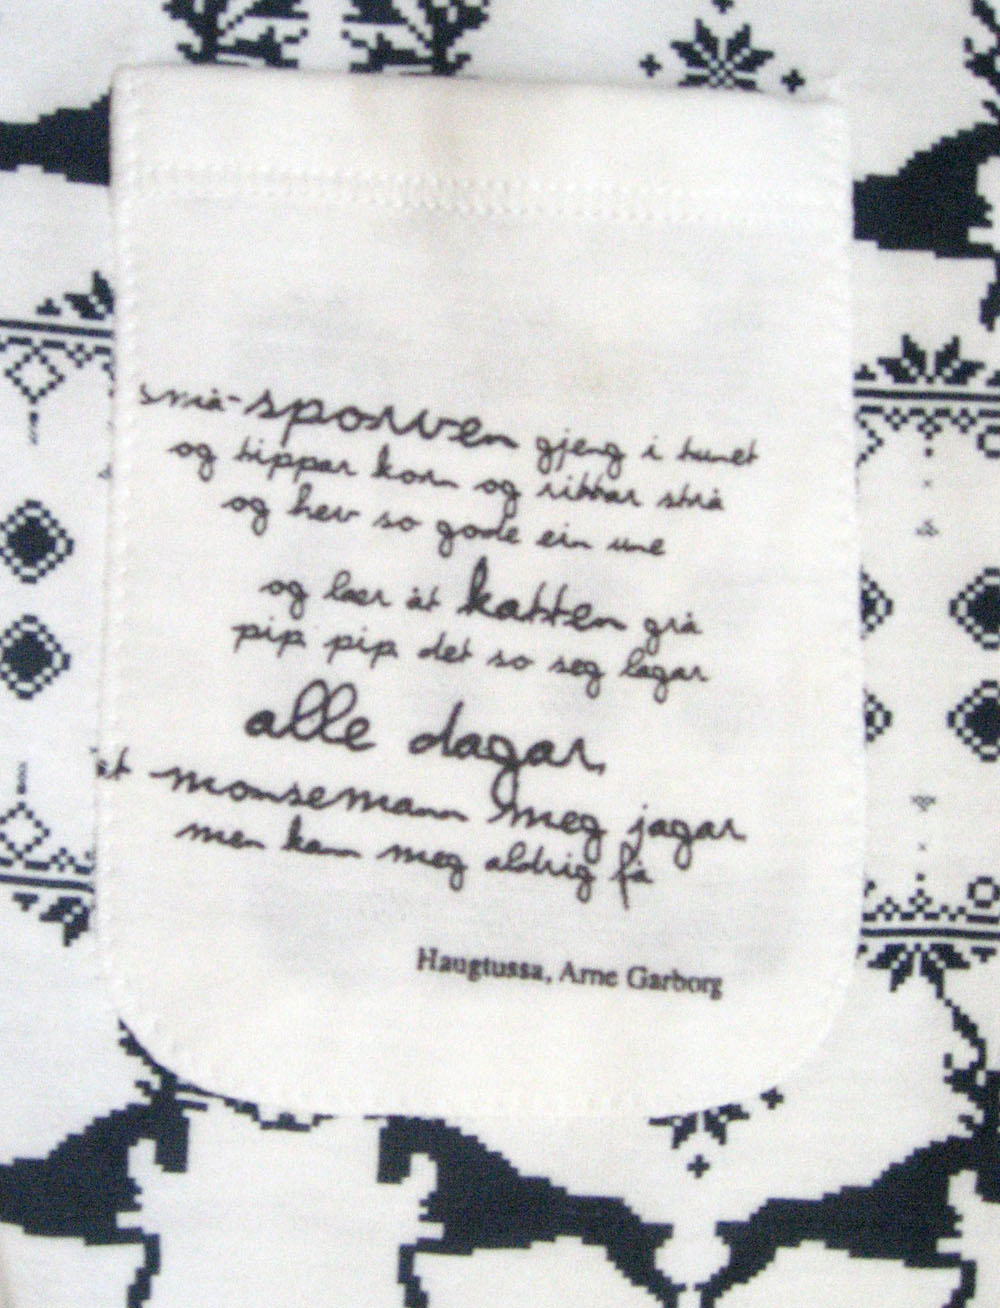 små-sporven gjeng i tunet
og tippar korn og ribbar strå
og hev so gode ein une
og lær åt katten grå
pip pip det so seg lagar
alle dagar,
monsemann meg jagar
men kann meg aldrig få
Haugtussa, Arne Garborg